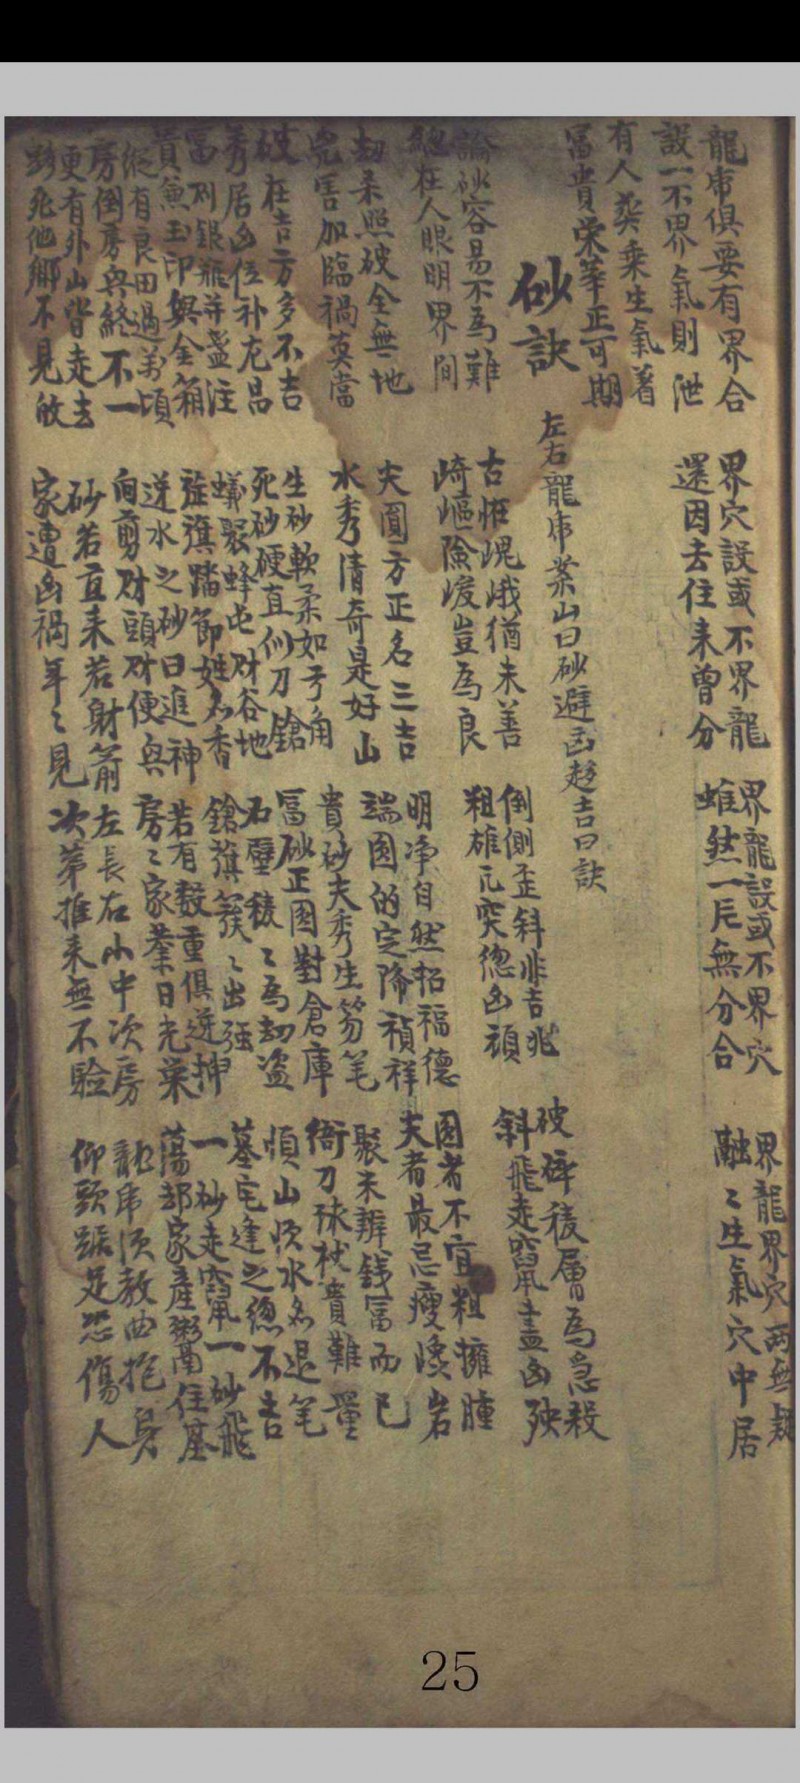 龍虎俱要有界合
設一不界氣則泄
界穴設或不界龍
還因去住未曾分
界龍設或不界穴
雖然一片無分合
界龍界穴兩無疑
融〻生氣穴中居
有人葬乘生氣着
富貴榮華正可期
砂訣
左右龍虎業山曰砂避凶趍吉曰訣
論砂容易不為難
總在人眼明界間
古恠嵬峨猶未善
崎嶇險峻豈為良
倒側歪斜非吉兆
粗雄兀突總凶頑
破碎稜層為急殺
斜飛走竄盡凶殃
劫杀照破全無地
害加臨禍莫當
尖圓方正名三吉
水秀清奇是好山
明净自然招福德
端圓的定降禎祥
圓者不宜粗擁腫
尖者最忌瘦岩
破在吉方多不吉
秀居凶位补尤昌
生砂軟柔如弓角
死砂硬直似刀鎗
貴砂尖秀生笏笔
富砂正圓對倉庫
聚未辦錢富而已
衙刀袱貴難量
富列銀瓶并盞注
貴魚玉印與金箱
蟻聚蜂屯財谷地
旌旗踏節姓名香
石壁稜〻為劫盗
鎗旗簇〻出强
順山順水名退笔
墓宅逢之總不吉
縱有良田過萬頃
房倒房興終不一
逆水之砂曰進神
向剪財頭財便興
若有數重俱逆押
房〻家業日光荣
一砂走竄一砂飛
蕩却家產鬻住基
更有外山皆走去
跡死他鄉不見故
砂若直来若射箭
家遭凶禍年〻見
左長右小中次房
次第推来無不驗
龍虎須教曲抱身
仰頭踞足恐傷人
25